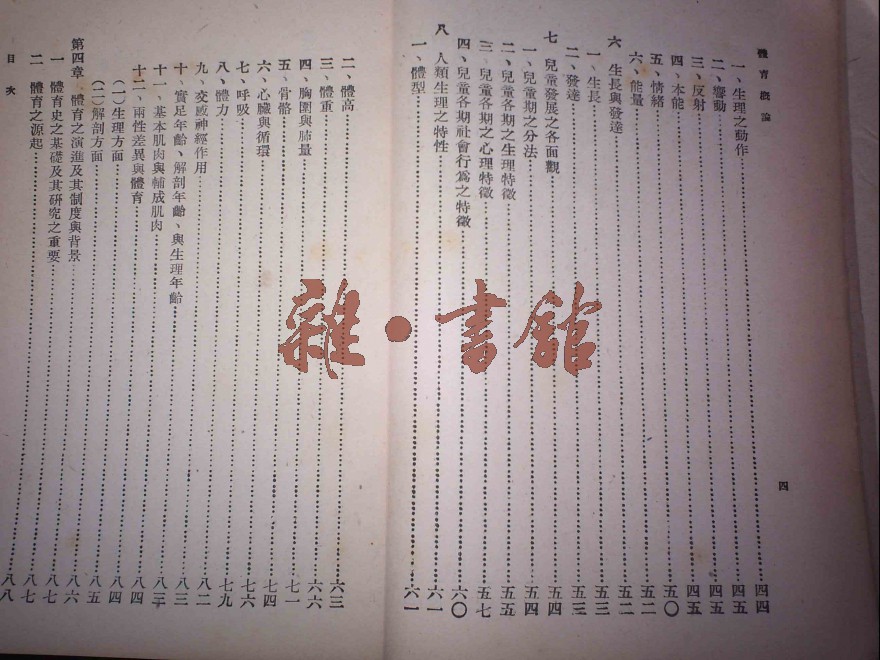 體育概論
一、生理之動作……四四
二、響動……四五
三、反射……四五
四、本能……四五
五、情緒……五〇
六、能量……五二
六 生長與發達……五二
一、生長……五三
二、發達……五三
七 兒童發展之各面觀……五四
一、兒童期之分法……五四
二、兒童各期之生理特徵……五五
三、兒童各期之心理特徵……五七
四、兒童各期社會行爲之特徵……六〇
八 人類生理之特性……六一
一、體型……六一
四
二、體高……六三
三、體重……六六
四、胸圍與肺量……七一
五、骨骼……七四
六、心臟與循環……七六
七、呼吸……七九
八、體力……八二
九、交感神經作用……八三
十、實足年齡、解剖年齡、與生理年齡……八三
十一、基本肌肉與輔成肌肉……八四
十二、兩性差異與體育……八四
(一)生理方面……八五
(二)解剖方面……八六
第四章 體育之演進及其制度與背景……八七
一 體育史之基礎及其研究之重要……八七
二 體育之源起……八八
目次
雜·書館